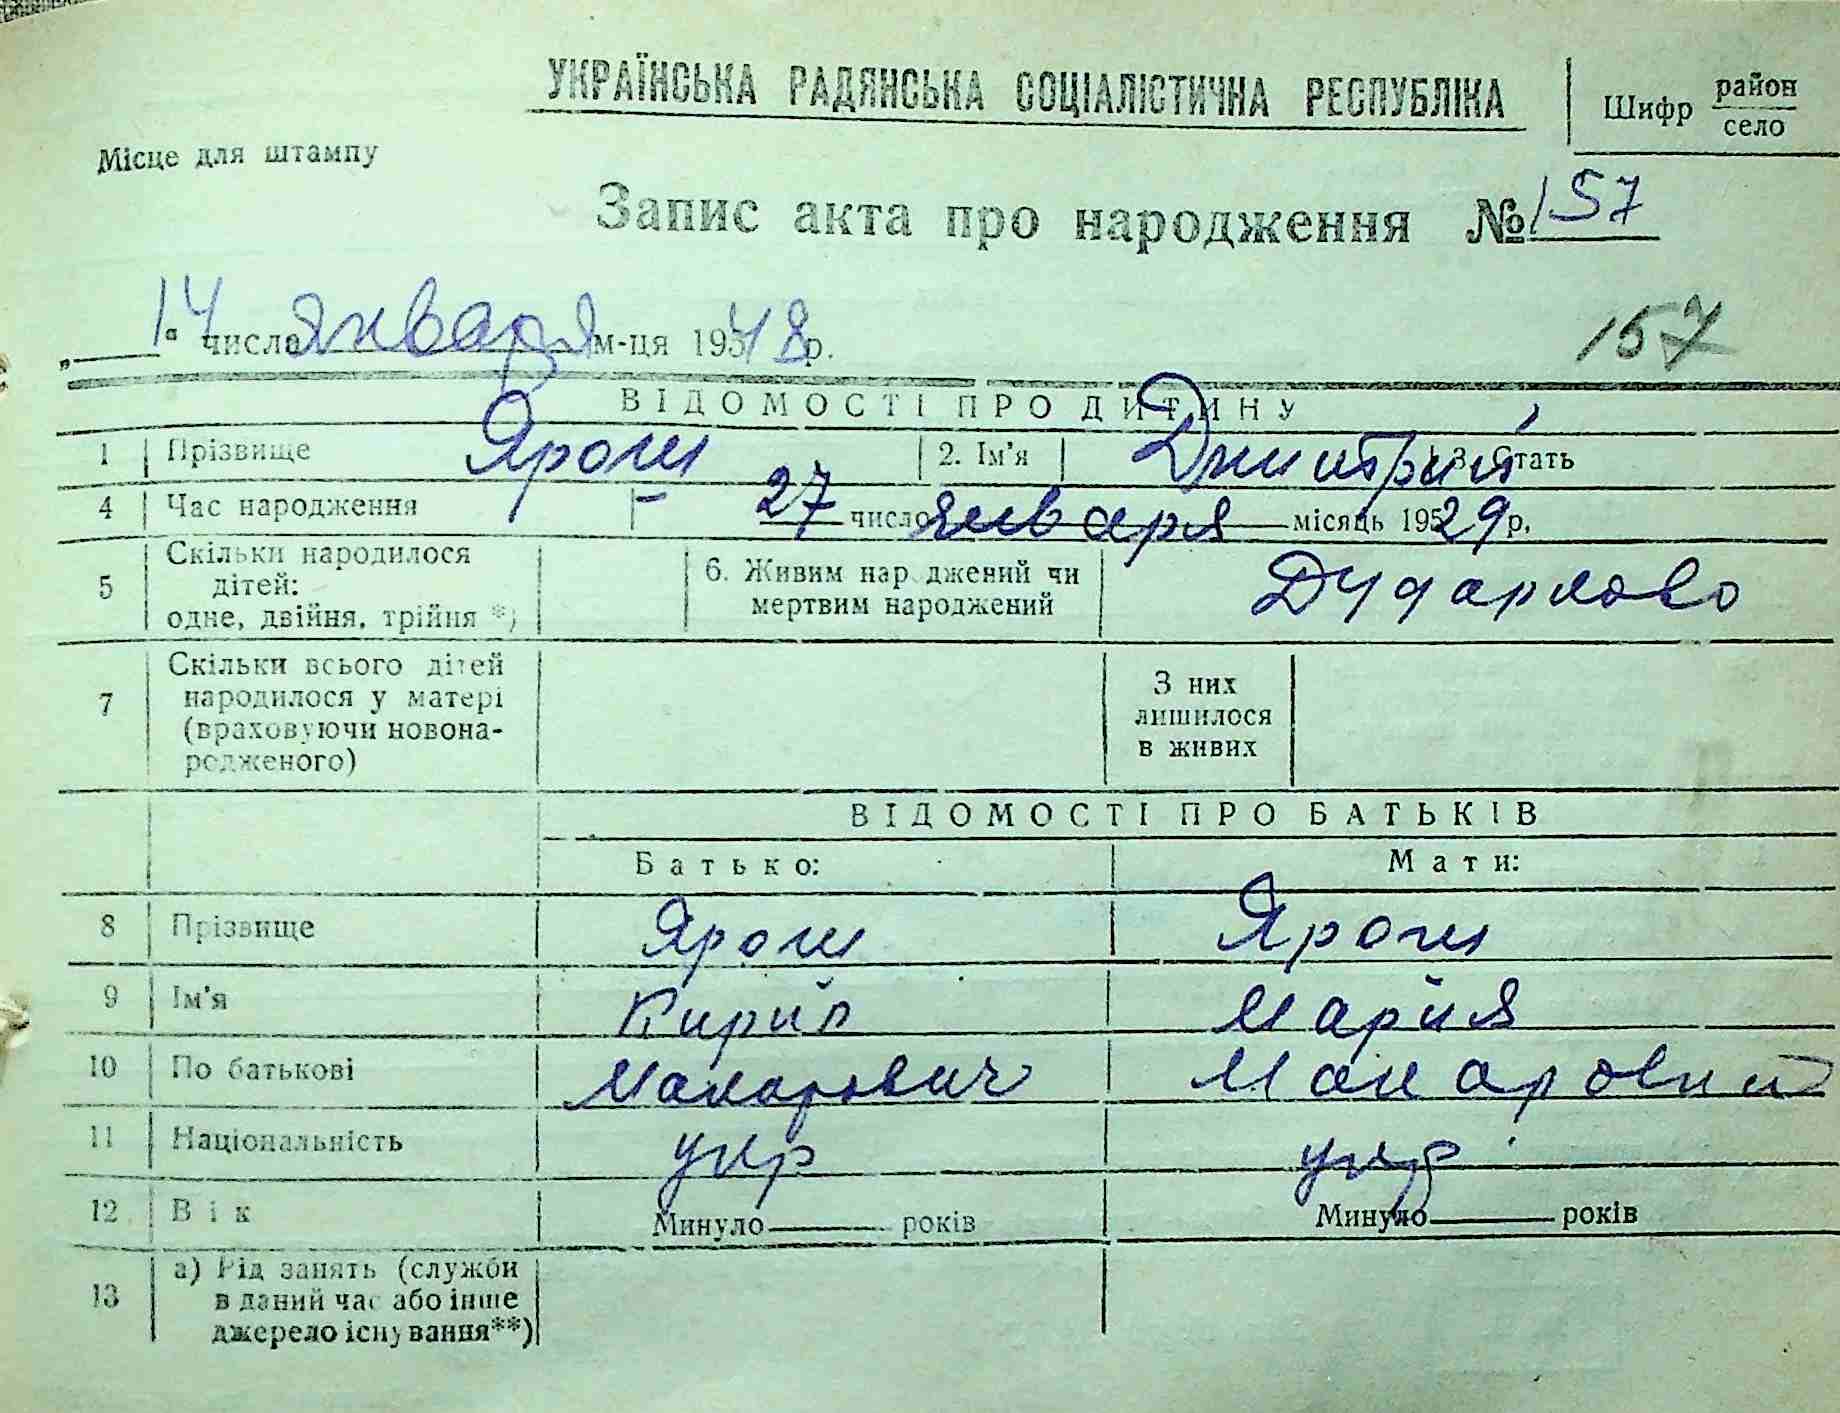 УКРАЇНСЬКА РАДЯНСЬКА СОЦІАЛІСТИЧНА РЕСПУБЛІКА
Шифр район
село
Місце для штампу
Запис акта про народження № 157
„14“ числа января м-ця 1948 р.
157
ВІДОМОСТІ ПРО ДИТИНУ
1 Прізвище Ярош 2. Ім'я Дмитрий 3. Стать
4 Час народження 27 число января місяць 1929 р.
5 Скільки народилося дітей: одне, двійня, трійня *) 6. Живим народжений чи мертвим народжений Дударково
7 Скільки всього дітей народилося у матері (враховуючи новонародженого) З них лишилося в живих
ВІДОМОСТІ ПРО БАТЬКІВ
Батько: Мати:
8 Прізвище Ярош Ярош
9 Ім'я Кирил Мария
10 По батькові Макарович
11 Національність укр укр
12 Вік Минуло років Минуло років
13 а) Рід занять (служби
в даний час або інше
джерело існування**)